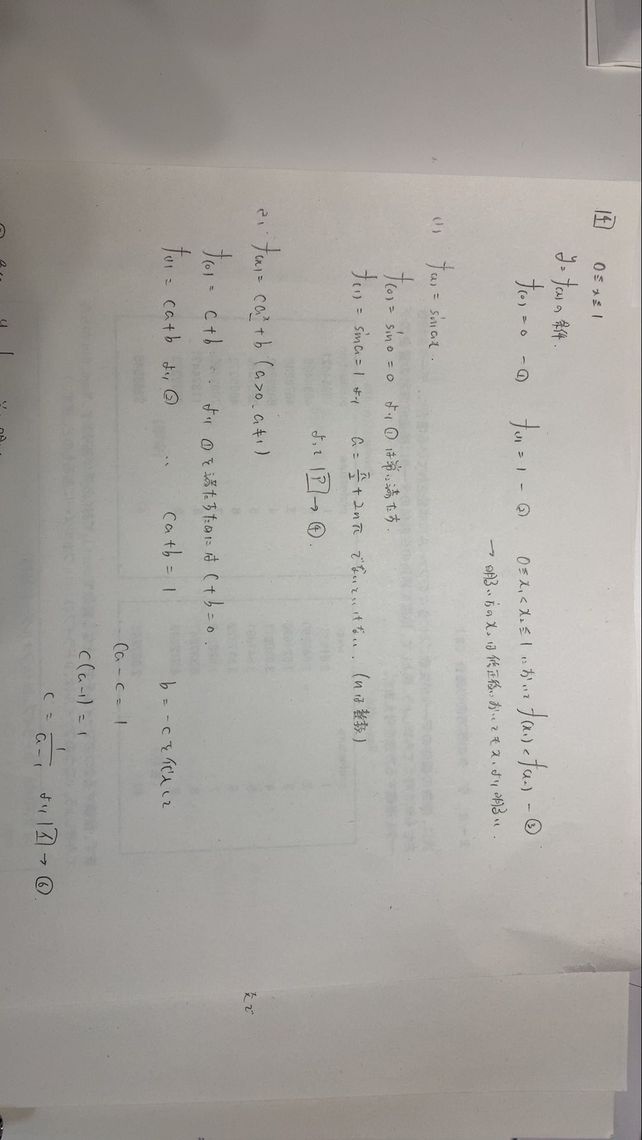 [4] 0≤x≤1
y=f(x)の条件.
f(0)=0 -① f(1)=1 -② 0≤x₁<x₂≤1 において f(x₁)<f(x₂) -③
→ 明るい方のx₂は修正後においてもx₁より明るい.
(1) f(x)=sin ax.
f(0)=sin0=0 より①は常に満たす.
f(1)=sin a=1 より a=π/2+2nπ でないといけない. (nは整数)
よって [ア]→④.
(2) f(x)=ca^x+b (a>0, a≠1)
f(0)=c+b より ①を満たすためには c+b=0.
f(1)=ca+b より② ca+b=1 b=-cを代入して
ca-c=1
c(a-1)=1
c=1/(a-1) より [イ]→⑥.